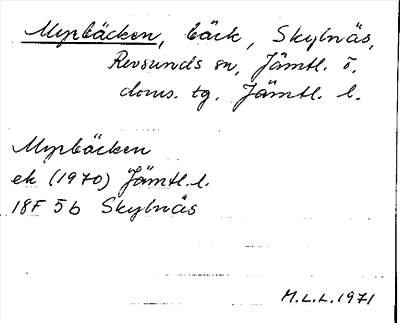 Myrbäcken, bäck, Skylnäs,
Revsunds sn, Jämtl. ö.
doms. tg. Jämtl. l.
Myrbäcken
ek (1970) Jämtl. l.
18F 5b Skylnäs
M.L.L. 1971